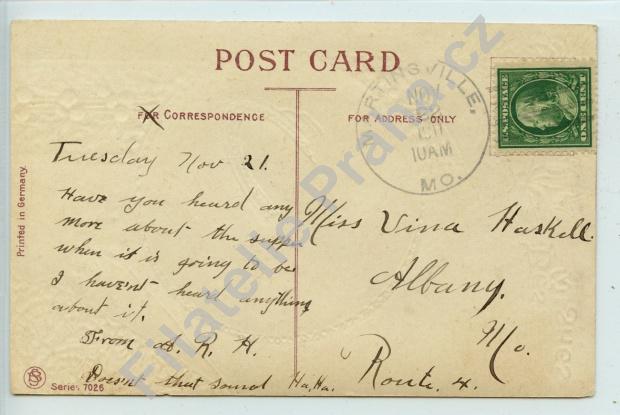 POST CARD
FOR CORRESPONDENCE
FOR ADDRESS ONLY
MARTINSVILLE,
NOV
1911
10AM
MO.
U.S. POSTAGE
ONE CENT
Tuesday Nov 21.
Have you heard any
more about the supp
when it is going to be
I haven't heard anything
about it.
From A. R. H.
Doesn't that sound Ha, Ha.
Miss Vina Haskell.
Albany.
Mo.
Route. 4.
Printed in Germany.
SB
Series 7026
Filatelie-Praha.cz